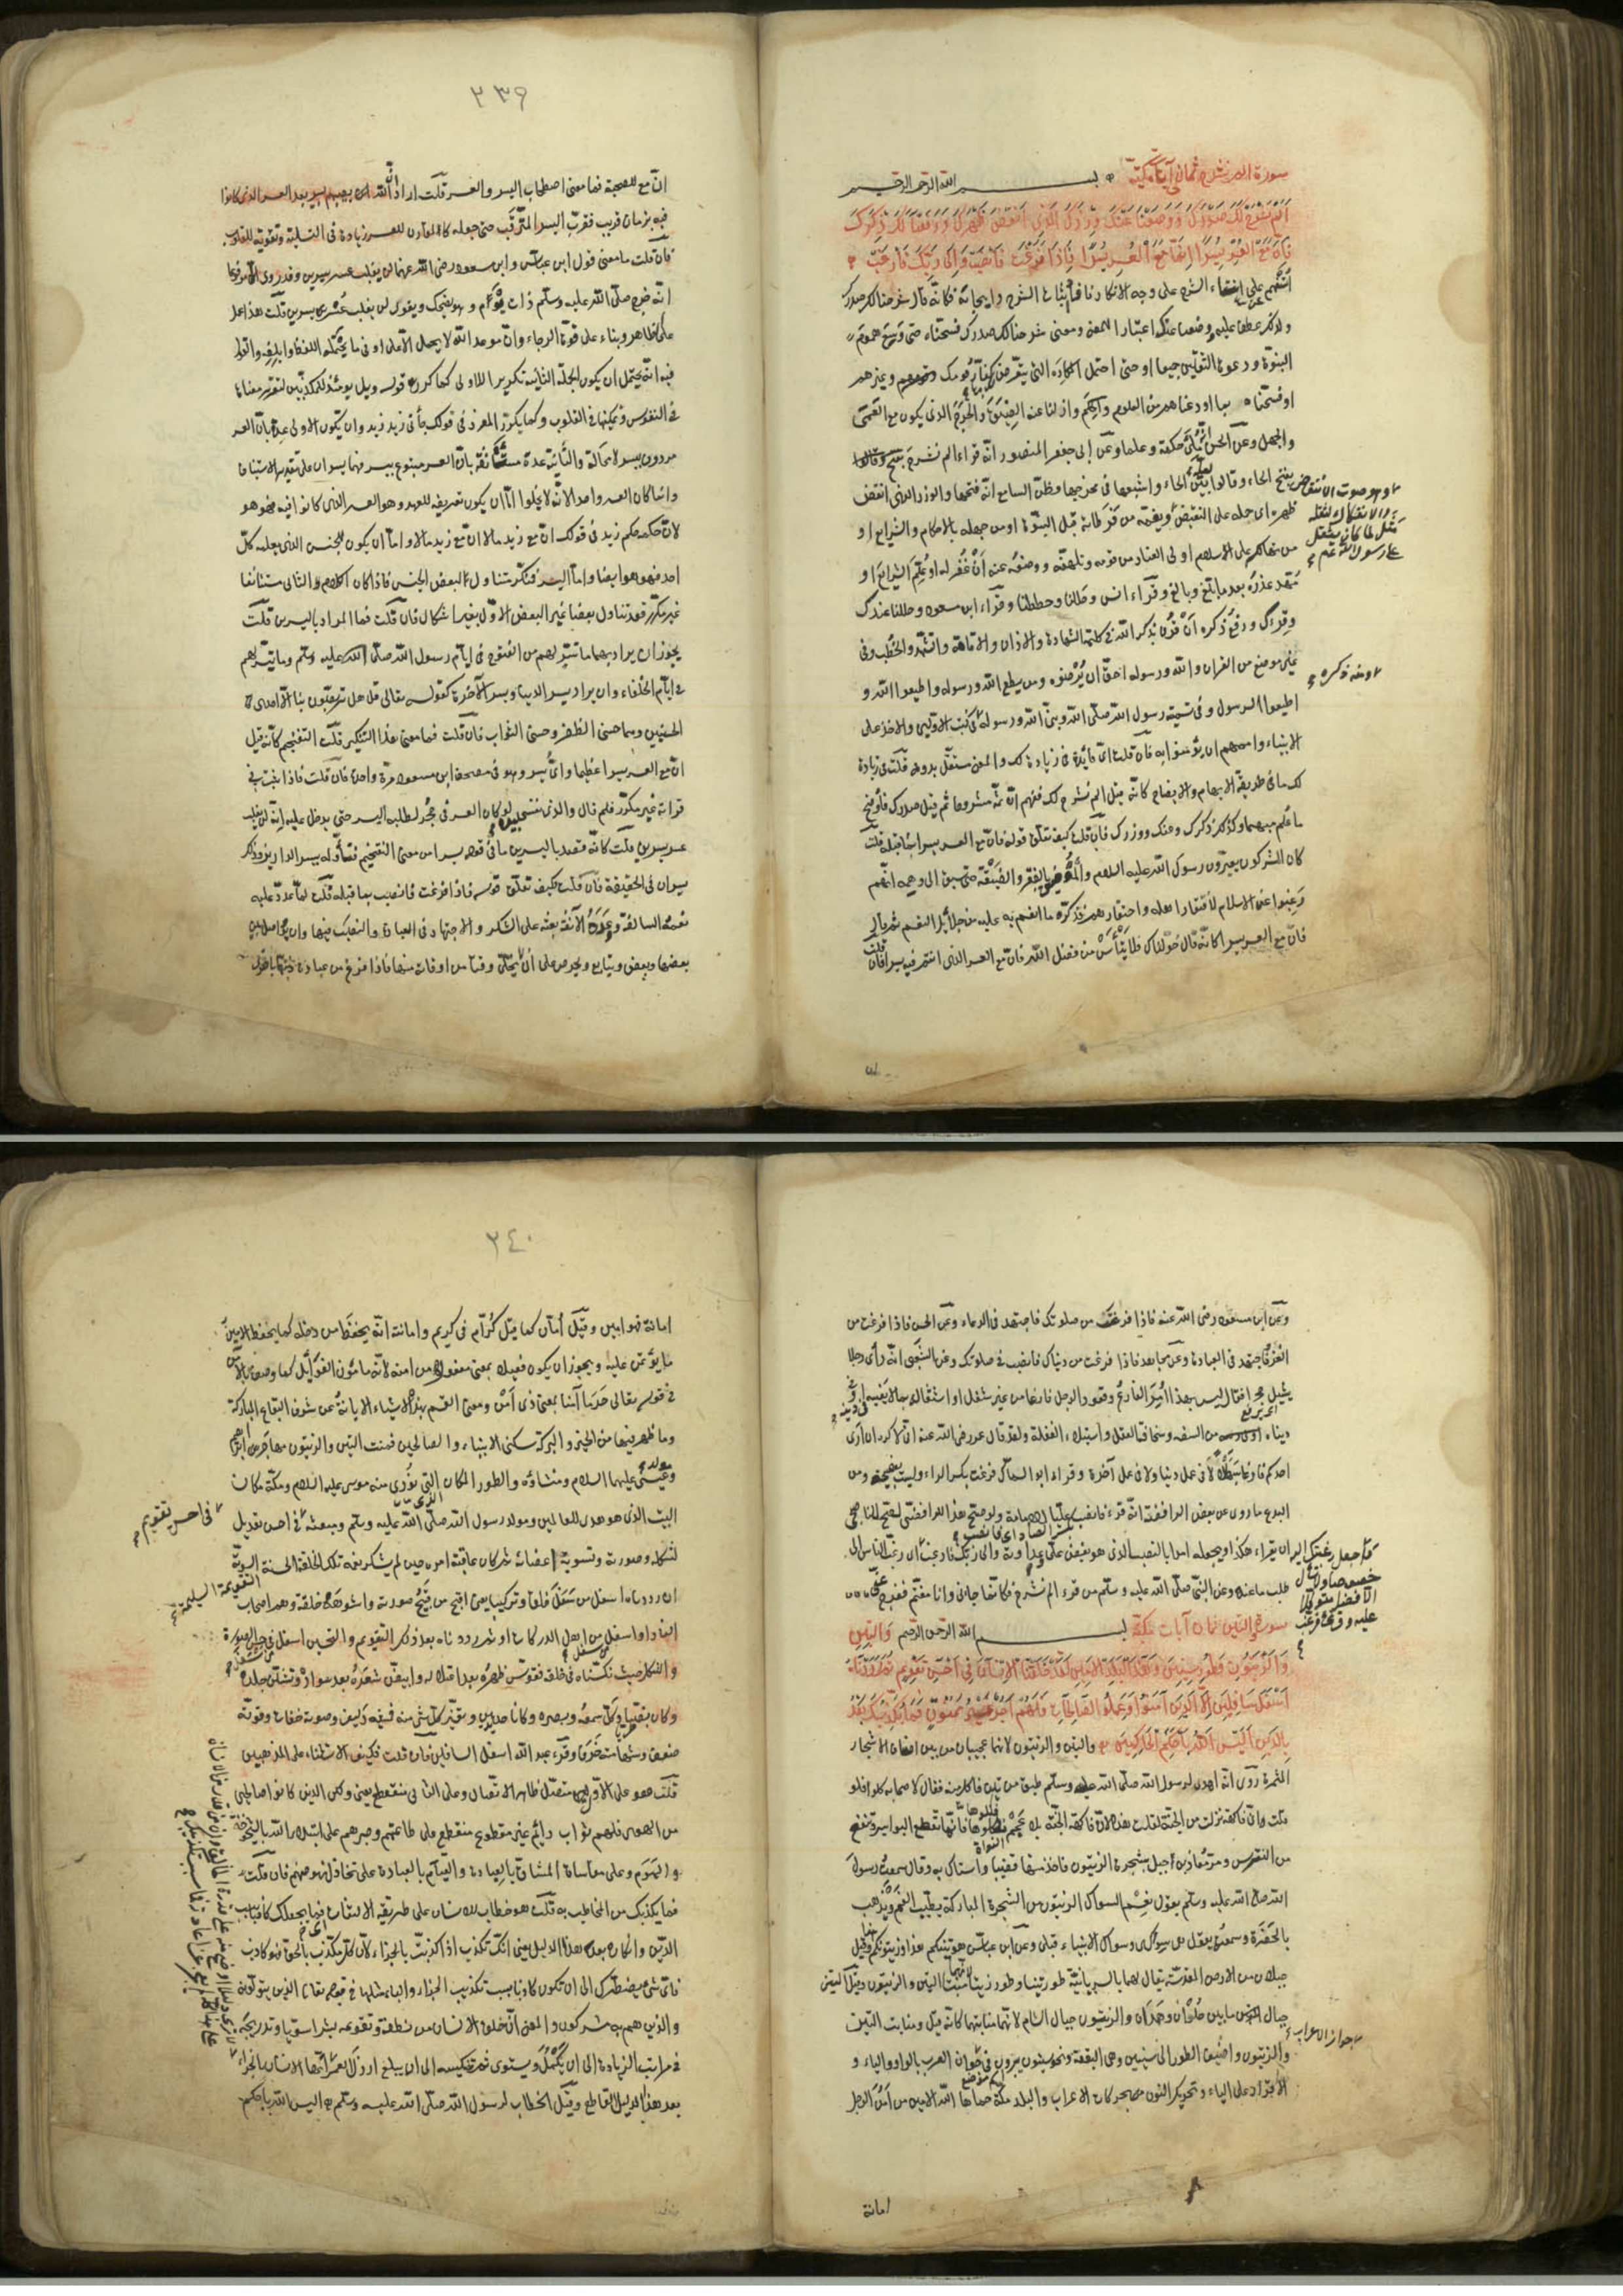 سورة الم نشرح ثماني آيات مكية بسم الله الرحمن الرحيم
أَلَمْ نَشْرَحْ لَكَ صَدْرَكَ وَوَضَعْنَا عَنْكَ وِزْرَكَ الَّذِي أَنْقَضَ ظَهْرَكَ وَرَفَعْنَا لَكَ ذِكْرَكَ
فَإِنَّ مَعَ الْعُسْرِ يُسْرًا إِنَّ مَعَ الْعُسْرِ يُسْرًا فَإِذَا فَرَغْتَ فَانْصَبْ وَإِلَى رَبِّكَ فَارْغَبْ
استفهم عن انتفاء الشرح على وجه الانكار فافاد اثبات الشرح وايجابه فكانه قال شرحنا لك صدرك
ولذلك عطف عليه وضعنا عنك اعتبارا للمعنى ومعنى شرحنا لك صدرك فسحناه حتى وسع هموم
النبوة ودعوة الثقلين جميعا او حتى احتمل المكاره التي يتعرض لك بها كفار قومك وغيرهم
او فسحناه بما اودعناه من العلوم والحكم وازلنا عنه الضيق والحرج الذي يكون مع العمى
والجهل وعن الحسن مُلئ حكمة وعلما وعن ابي جعفر المنصور انه قراء الم نشرح
بفتح الحاء وقالوا لعله بيّن الحاء واشبعها في مخرجها فظن السامع انه فتحها والوزر الذي انقض
ظهره اي حمله على النقيض
وهو صوت الانتقاض والانفكاك لثقله
مثل لما كان يثقل
على رسول الله صلعم
ويغمه من فرطاته قبل النبوة او من جهله بالاحكام والشرايع او
من تهالكه على اسلام اولي العناد من قومه وتلهفه ووضعه عنه أن غفر له او علم الشرايع او
مهد عذره بعد ما بلغ وبالغ وقراء انس وحللنا وحططنا وقراء ابن مسعود وحللنا عنك
وقرك ورفع ذكره أن قرن بذكر الله في كلمة الشهادة والاذان والاقامة والتشهد والخطب وفي
غير موضع من القران والله ورسوله احق ان يرضوه ومن يطع الله ورسوله واطيعوا الله و
اطيعوا الرسول وفي تسميته رسول الله صلى الله ونبي الله
ومنه ذكره
في كتب الاولين والاخذ على
الانبياء واممهم ان يؤمنوا به فان قلت اي فائدة في زيادة لك والمعنى مستقل بدونه قلت في زيادة
لك ما في طريقة الابهام والايضاح كانه قيل الم نشرح لك ففهم ان ثم مشروحا ثم قيل صدرك فاوضح
ما علم مبهما وكذلك لك ذكرك وعنك وزرك فان قلت كيف تعلق قوله فان مع العسر يسرا بما قبله قلت
كان المشركون يعيرون رسول الله عليه السلام والمؤمنين بالفقر والضيقة حتى سبق الى وهمه انهم
رغبوا عن الاسلام لافتقار اهله واحتقارهم فذكره ما انعم به عليه من جلائل النعم ثم قال
فان مع العسر يسرا كانه قال خولناك ما خولناك فلا تيأس من فضل الله فان مع العسر الذي انتم فيه يسرا فان قلت
٢٣٩
ان مع للصحبة فما معنى اصطحاب اليسر والعسر قلت اراد ان الله يصيبهم بيسر بعد العسر الذي كانوا
فيه بزمان قريب فقرب اليسر المترقب حتى جعله كالمقارن للعسر زيادة في التسلية وتقوية للقلوب
فان قلت ما معنى قول ابن عباس وابن مسعود رضي الله عنهما لن يغلب عسر يسرين وقد روي مرفوعا
انه خرج صلى الله عليه وسلم ذات يوم وهو يضحك ويقول لن يغلب عسر يسرين قلت هذا عمل
على الظاهر وبناء على قوة الرجاء وان موعد الله لا يحمل الا على اوفى ما يحتمله اللفظ وابلغه والقول
فيه انه يحتمل ان يكون الجملة الثانية تكريرا للاولى كما كرر قوله ويل يومئذ للمكذبين لتقرير معناها
في النفوس وتمكينها في القلوب وكما يكرر المفرد في قولك جاءني زيد زيد وان يكون الاولى عدة بان العسر
مردوف بيسر لا محالة والثانية عدة مستأنفة بان العسر متبوع بيسر فهما يسران على تقدير الاستيناف
وانما كان العسر واحدا لانه لا يخلوا اما ان يكون تعريفه للعهد وهو العسر الذي كانوا فيه فهو هو
لان حكمه حكم زيد في قولك ان مع زيد مالا ان مع زيد مالا واما ان يكون للجنس الذي يعلمه كل
احد فهو هو ايضا واما اليسر فمنكر متناول لبعض الجنس فاذا كان الكلام الثاني مستأنفا
غير مكرر فقد تناول بعضا غير البعض الاول بغير اشكال فان قلت فما المراد باليسرين قلت
يجوز ان يراد بهما ما تيسر لهم من الفتوح في ايام رسول الله صلى الله عليه وسلم وما تيسر لهم
في ايام الخلفاء وان يراد يسر الدنيا ويسر الآخرة كقوله تعالى قل هل تربصون بنا الا احدى
الحسنيين وهما حسنى الظفر وحسنى الثواب فان قلت فما معنى هذا التنكير قلت التفخيم كانه قيل
ان مع العسر يسرا عظيما واي يسر وهو في مصحف ابن مسعود مرة واحدة فان قلت فاذا ثبت في
قراءته غير مكرر فلم قال والذي نفسي بيده لو كان العسر في جحر لطلبه اليسر حتى يدخل عليه انه لن يغلب
عسر يسرين قلت كانه قصد باليسرين ما في قوله يسرا من معنى التفخيم فتأوله بيسر الدارين وذلك
يسران في الحقيقة فان قلت كيف تعلق قوله فاذا فرغت فانصب بما قبله قلت لما عدد عليه
نعمه السالفة ووعده الآنفة بعثه على الشكر والاجتهاد في العبادة والنصب فيها وان يواصل بين
بعضها وبعض ويتابع ويحرص على ان لا يخلى وقتا من اوقاته منها فاذا فرغ من عبادة ذنبها باخرى
وعن ابن مسعود رضي الله عنه فاذا فرغت من صلوتك فاجتهد في الدعاء وعن الحسن فاذا فرغت من
الغزو فاجتهد في العبادة وعن مجاهد فاذا فرغت من دنياك فانصب في صلوتك وعن الشعبي انه رأى رجلا
يشيل حجرا فقال ليس بهذا أمر الفارغ وقعود الرجل فارغا من غير شغل او اشتغاله بما لا يعنيه في دينه او
دنياه من سفه الرأي وسخافة العقل واستيلاء الغفلة ولقد قال عمر رضي الله عنه اني لاكره ان ارى
احدكم فارغا سبهللا لا في عمل دنيا ولا في عمل آخرة وقراء ابو السمال فرغت بكسر الراء وليست بفصيحة ومن
البدع ما روي عن بعض الرافضة انه قرء فانصب بكسر الصاد اي فانصب عليا للامامة ولو صح هذا للرافضي لصح للناصبي
ان يقراء هكذا ويجعله امرا بالنصب الذي هو بغض علي وعداوته والى ربك فارغب
واجعل رغبتك اليه
خصوصا ولا تسأل
الا فضله متوكلا
عليه وقرئ فرغب
اي رغب الناس الى
طلب ما عنده وعن النبي صلى الله عليه وسلم من قرء الم نشرح فكانما جاءني وانا مغتم ففرج عني
سورة والتين ثمان آيات مكية بسم الله الرحمن الرحيم وَالتِّينِ
وَالزَّيْتُونِ وَطُورِ سِينِينَ وَهَذَا الْبَلَدِ الْأَمِينِ لَقَدْ خَلَقْنَا الْإِنْسَانَ فِي أَحْسَنِ تَقْوِيمٍ ثُمَّ رَدَدْنَاهُ
أَسْفَلَ سَافِلِينَ إِلَّا الَّذِينَ آمَنُوا وَعَمِلُوا الصَّالِحَاتِ فَلَهُمْ أَجْرٌ غَيْرُ مَمْنُونٍ فَمَا يُكَذِّبُكَ بَعْدُ
بِالدِّينِ أَلَيْسَ اللَّهُ بِأَحْكَمِ الْحَاكِمِينَ والتين والزيتون لانهما عجيبان من بين اصناف الاشجار
المثمرة روي انه اهدي لرسول الله صلى الله عليه وسلم طبق من تين فاكل منه فقال لاصحابه كلوا فلو
قلت ان فاكهة نزلت من الجنة لقلت هذه لان فاكهة الجنة بلا عجم فكلوها فانها تقطع البواسير وتنفع
من النقرس ومر معاذ بن جبل بشجرة الزيتون فاخذ منها قضيبا واستاك به وقال سمعت رسول
الله صلى الله عليه وسلم يقول نعم السواك الزيتون من الشجرة المباركة يطيب الفم ويذهب
بالحفرة وسمعته يقول هي سواكي وسواك الانبياء قبلي وعن ابن عباس هو تينكم هذا وزيتونكم وقيل
جبلان من الارض المقدسة يقال لهما بالسريانية طور تينا وطور زيتا لانهما منبتا التين والزيتون وقيل التين
جبال ما بين حلوان وهمدان والزيتون جبال الشام لانها منابتهما كانه قيل ومنابت التين
والزيتون واضيف الطور الى سينين وهي البقعة ونحو سينون يبرون في جواز الاعراب بالواو والياء و
الاقرار على الياء وتحريك النون بحركات الاعراب والبلد مكة حماها الله الامين من امن الرجل
امانة
٢٤٠
امانة فهو امين وقيل أمان كما قيل كرام في كريم وامانته انه يحفظ من دخله كما يحفظ الامين
ما يؤتمن عليه ويجوز ان يكون فعيلا بمعنى مفعول من امنه لانه مأمون الغوائل كما وصف بالامن
في قوله تعالى حرما آمنا بمعنى ذي امن ومعنى القسم بهذه الاشياء الابانة عن شرف البقاع المباركة
وما ظهر فيها من الخير والبركة بسكنى الانبياء والصالحين فمنبت التين والزيتون مهاجر ابراهيم
ومولد عيسى عليهما السلام ومنشاؤه والطور المكان الذي نودي منه موسى عليه السلام ومكة مكان
البيت الذي هو هدى للعالمين ومولد رسول الله صلى الله عليه وسلم ومبعثه
في احسن تقويم
في احسن تعديل
لشكله وصورته وتسوية اعضائه ثم كان عاقبة امره حين لم يشكر نعمة تلك الخلقة الحسنة
القويمة السوية
ان رددناه اسفل من سفل خلقا وتركيبا يعني اقبح من قبح صورته واشوهه خلقة وهم اصحاب
النار او اسفل من اهل الدركات او ثم رددناه بعد ذلك التقويم والتحسين اسفل من سفل في حسن الصورة
والشكل حيث نكسناه في خلقه فتقوس ظهره بعد اعتداله وابيض شعره بعد سواده وتشنن جلده
وكان بضا وكل سمعه وبصره وكانا حديدين وتغير كل شيء منه فمشيه دليف وصوته خفات وقوته
ضعف وشهامته خرف وقرء عبد الله اسفل السافلين فان قلت فكيف الاستثناء على المذهبين
قلت هو على الاول متصل ظاهر الاتصال وعلى الثاني منقطع يعني ولكن الذين كانوا صالحين
من الهرمى فلهم ثواب دائم غير منقطع على طاعتهم وصبرهم على ابتلاء الله بالشيخوخة
والهرم وعلى مقاساة المشاق والقيام بالعبادة على تخاذل نهوضهم فان قلت
فما يكذبك من المخاطب به قلت هو خطاب للانسان على طريقة الالتفات اي فما يجعلك كاذبا بسبب
الدين وانكاره بعد هذا الدليل يعني انك تكذب اذا كذبت بالجزاء لان كل مكذب بالحق فهو كاذب
فاي شيء يضطرك الى ان تكون كاذبا بسبب تكذيب الجزاء والباء مثلها في قوله تعالى الذين يتولونه
والذين هم به مشركون والمعنى ان خلق الانسان من نطفة وتقويمه بشرا سويا وتدريجه
في مراتب الزيادة الى ان يكمل ويستوي ثم تنكيسه الى ان يبلغ ارذل العمر
بعد هذا الدليل القاطع وقيل الخطاب لرسول الله صلى الله عليه وسلم اليس الله باحكم